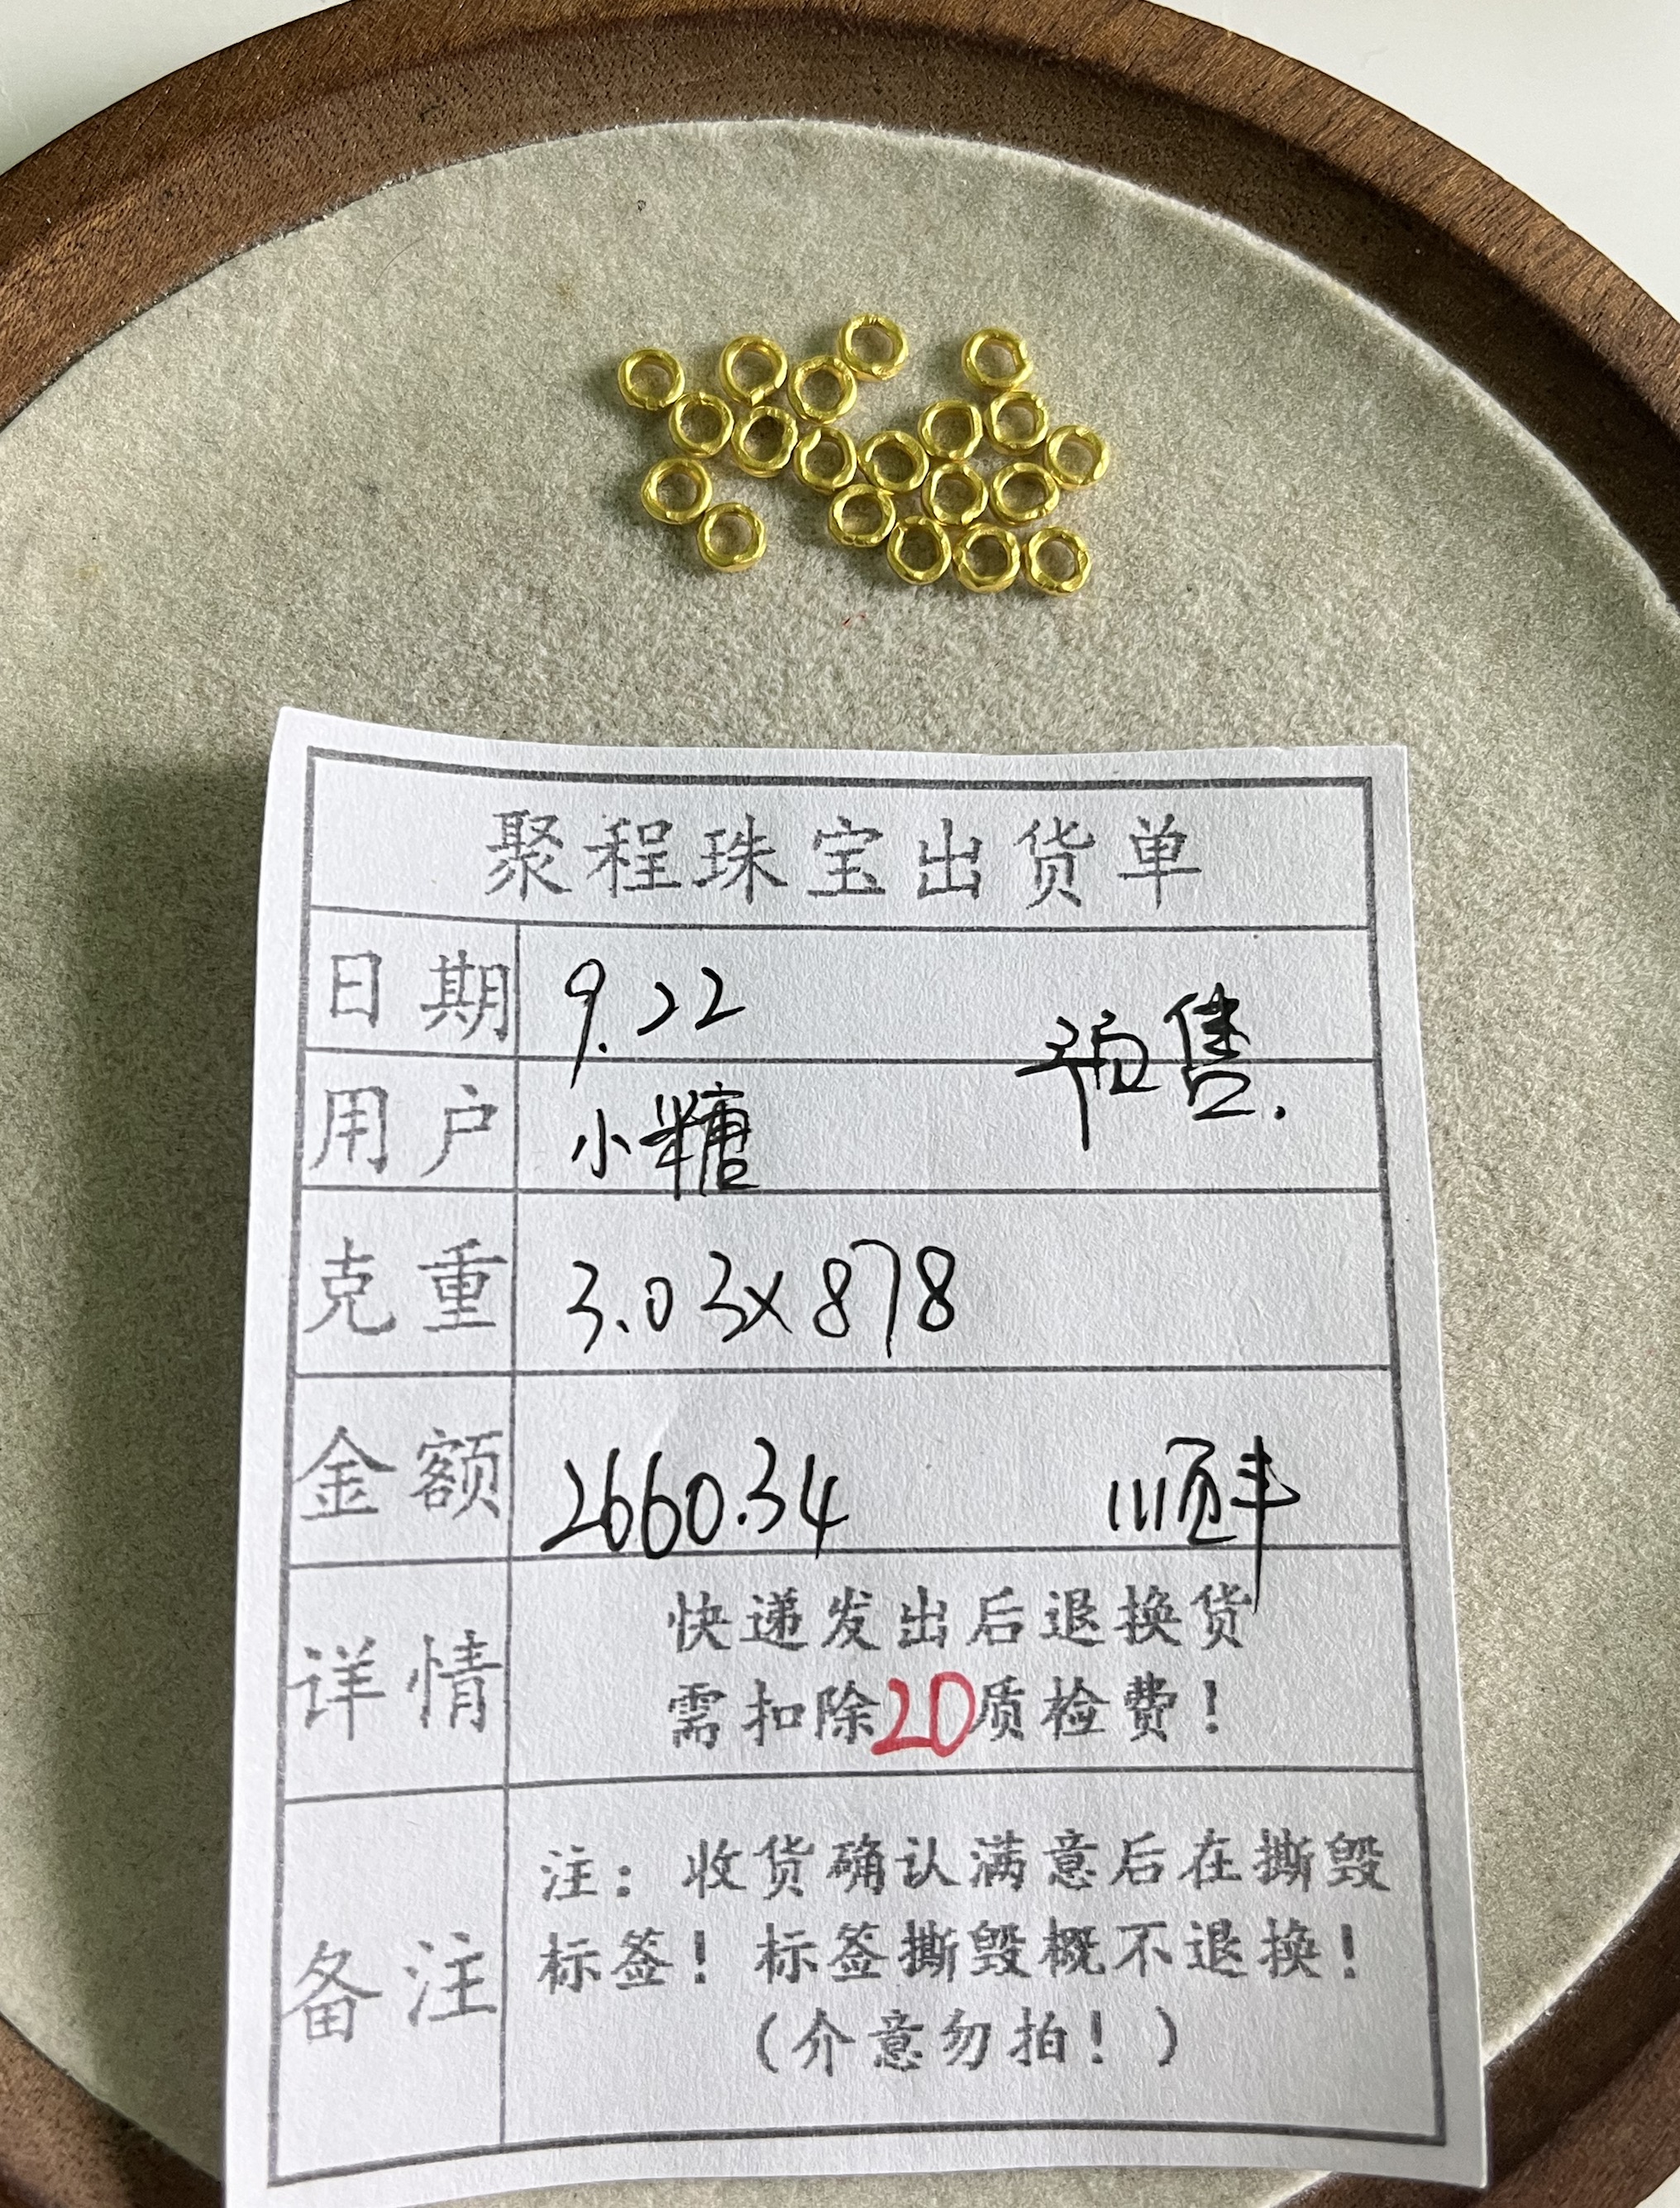 聚程珠宝出货单
日期 9.22 预售.
用户 小糖
克重 3.03x878
金额 2660.34 顺丰
详情 快递发出后退换货
需扣除20质检费！
备注 注：收货确认满意后在撕毁
标签！标签撕毁概不退换！
（介意勿拍！）